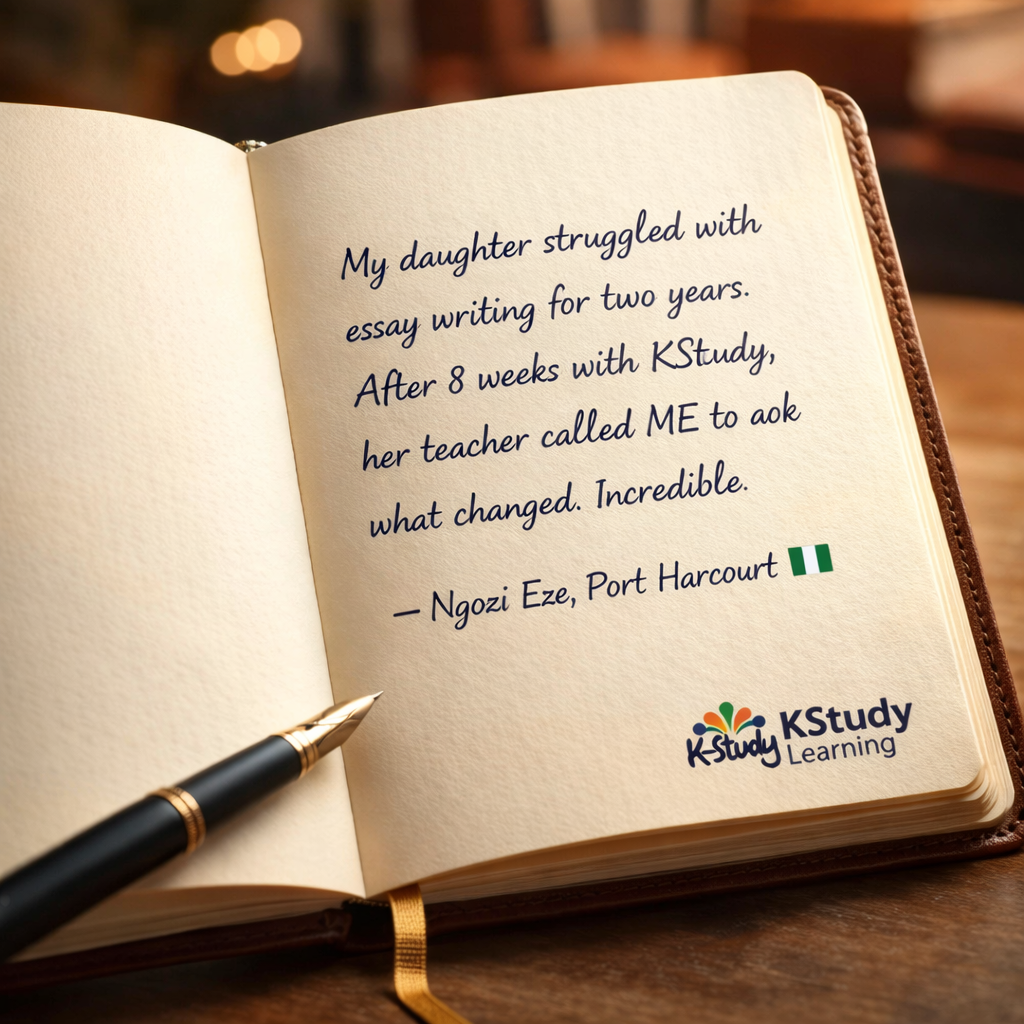 My daughter struggled with
essay writing for two years.
After 8 weeks with KStudy,
her teacher called ME to aok
what changed. Incredible.
— Ngozi Eze, Port Harcourt 🇳🇬
K-Study
KStudy
Learning